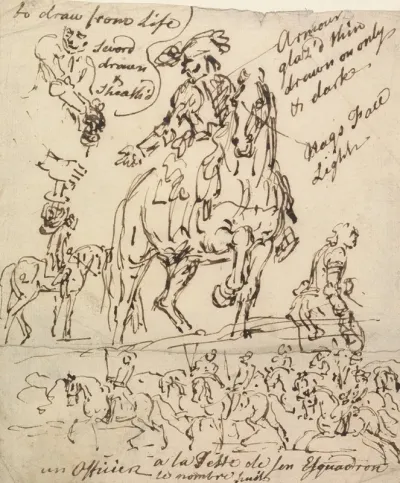 to draw from Life
Sword
drawn
&
Sheath'd
Armour
glaz'd thin
drawn on only
& dark
Nags Face
Light
un Officier a la Teste de son Esquadron
le nombre